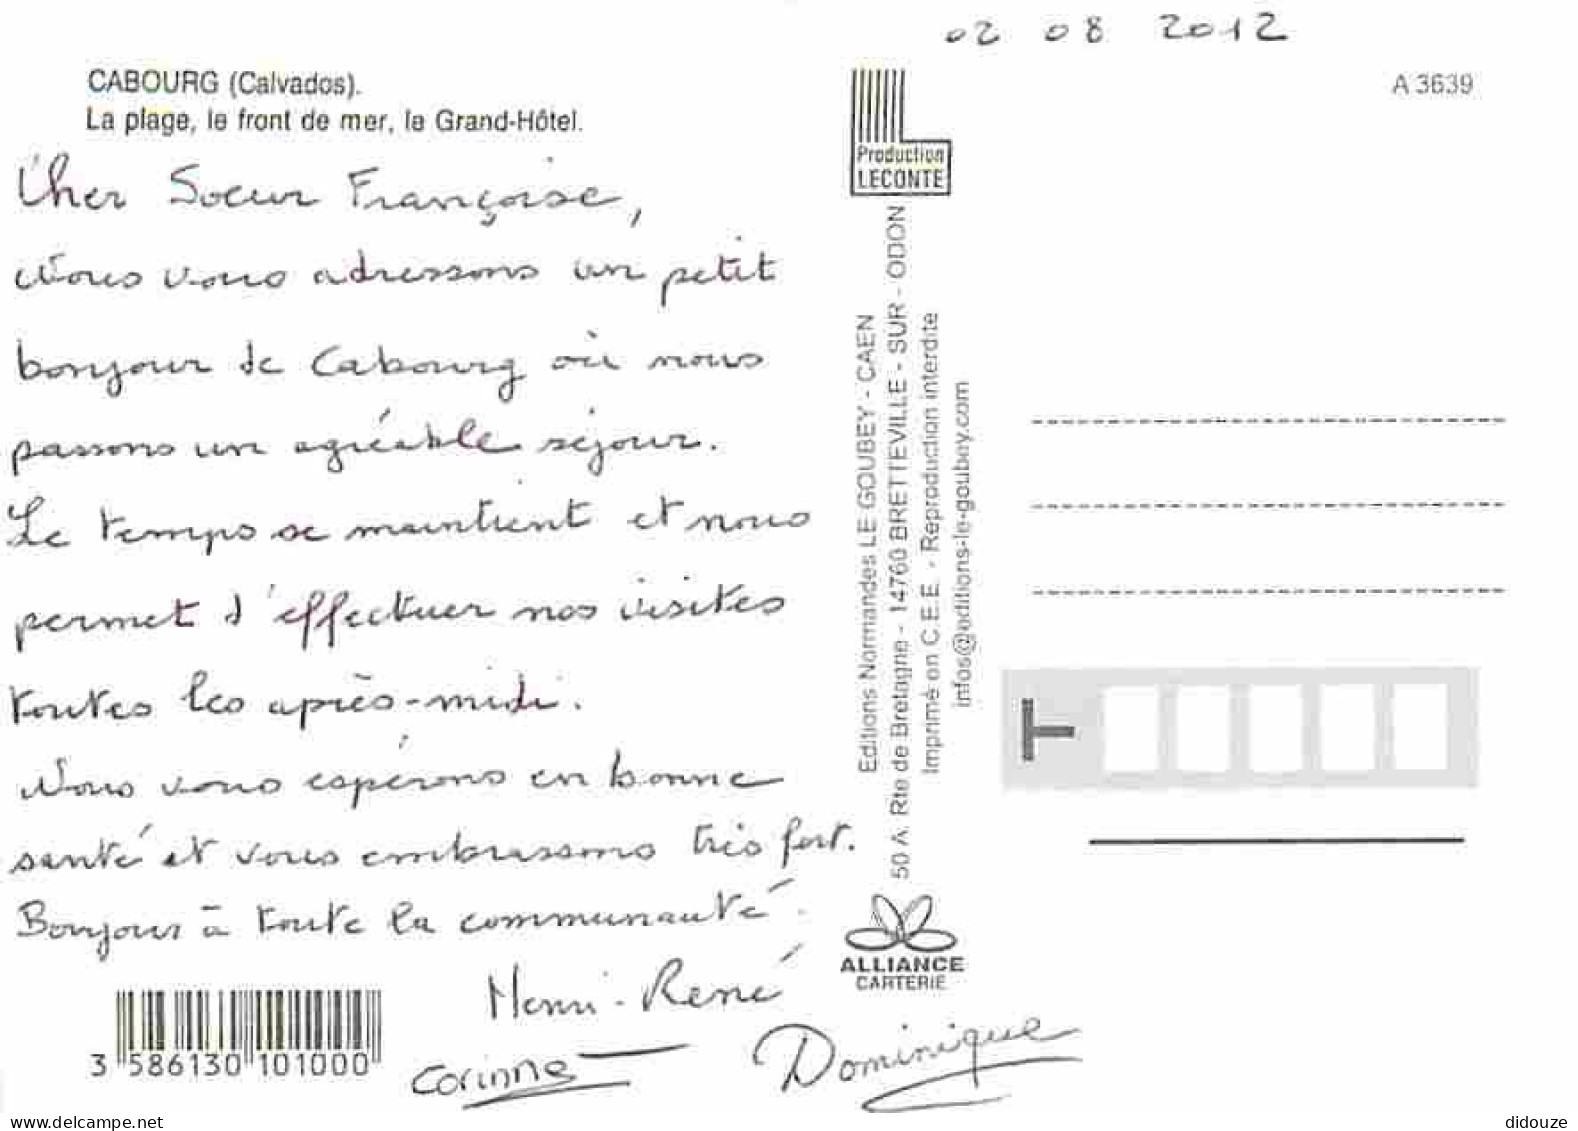 02 08 2012
CABOURG (Calvados).
La plage, le front de mer, le Grand-Hôtel.
A 3639
Production
LECONTE
Cher Soeur Françoise,
Nous vous adressons un petit
bonjour de Cabourg où nous
passons un agréable séjour.
Le temps se maintient et nous
permet d'effectuer nos visites
toutes les après-midi.
Nous vous espérons en bonne
santé et vous embrassons très fort.
Bonjour à toute la communauté.
Henri-René
Corinne
Dominique
Editions Normandes LE GOUBEY - CAEN
50 A Rte de Bretagne - 14760 BRETTEVILLE - SUR - ODON
Imprimé en C.E.E. - Reproduction interdite
infos@editions-le-goubey.com
T
ALLIANCE
CARTERIE
3 586130 101000
www.delcampe.net
didouze